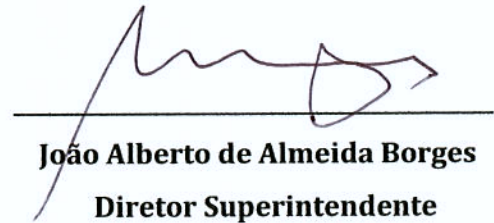 João Alberto de Almeida Borges
Diretor Superintendente